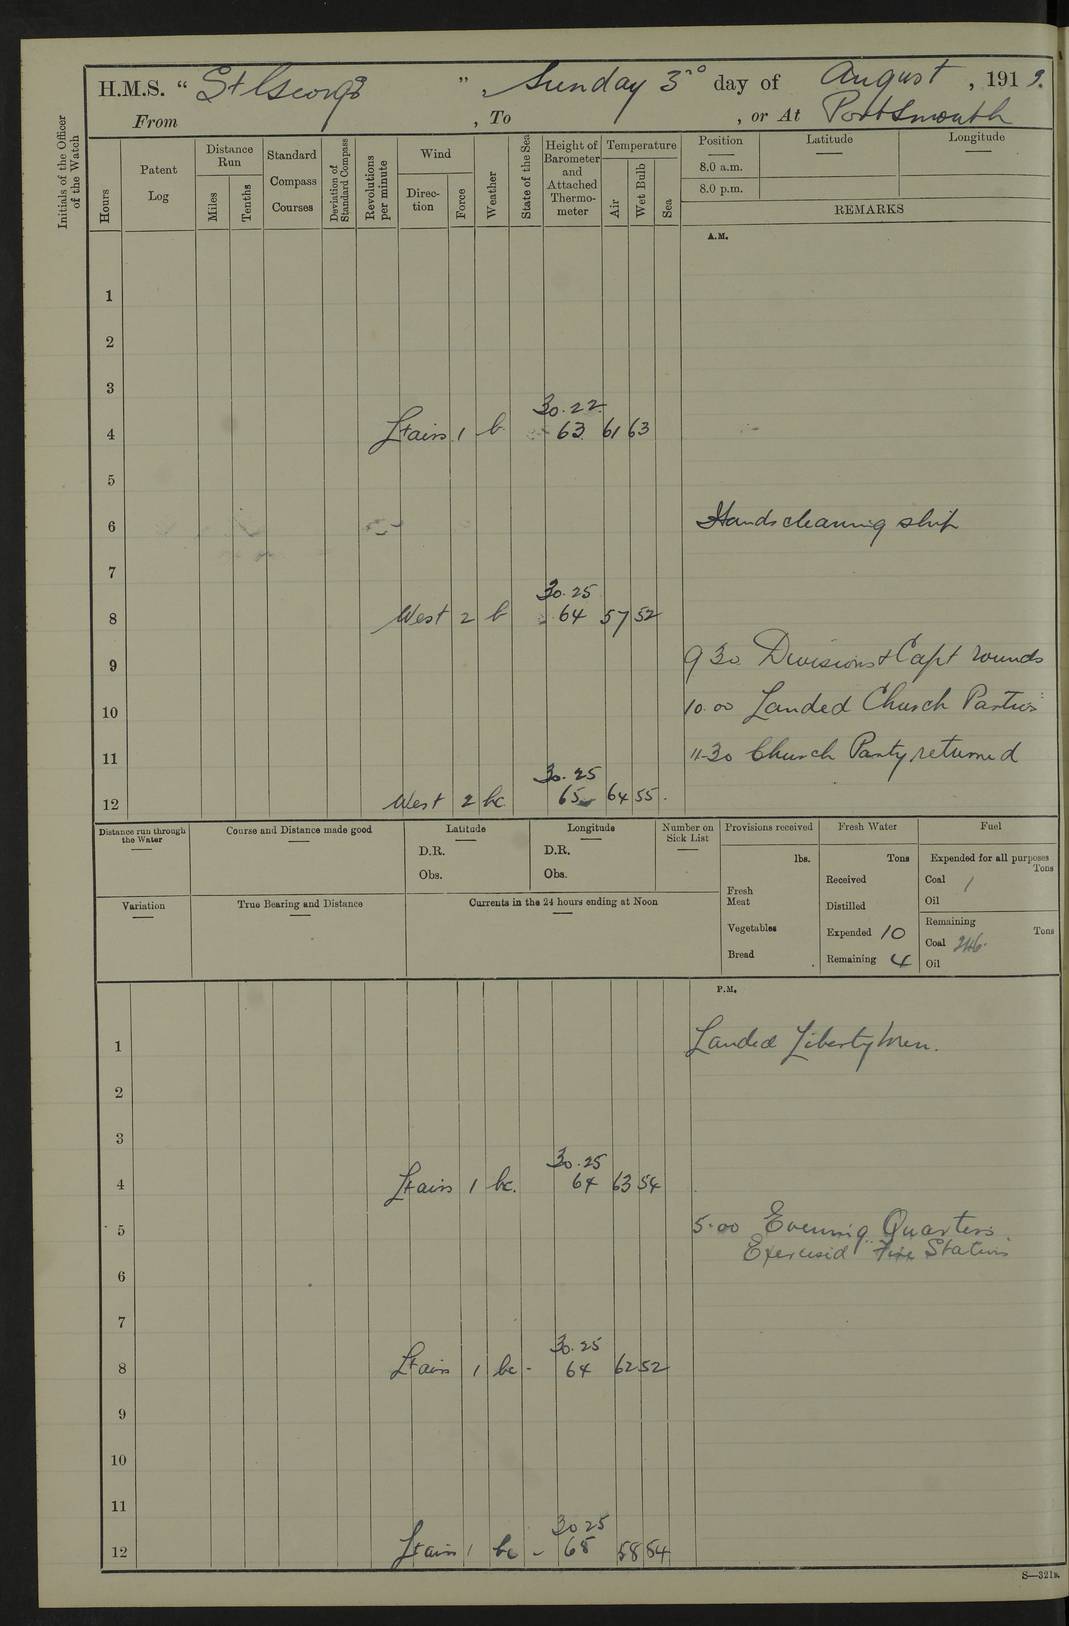 H.M.S. “ St George ” , Sunday 3rd day of August , 1919.
From , To , or At Portsmouth
Initials of the Officer of the Watch
Hours
Patent Log
Distance Run
Miles
Tenths
Standard Compass Courses
Deviation of Standard Compass
Revolutions per minute
Wind
Direc-tion
Force
Weather
State of the Sea
Height of Barometer and Attached Thermo-meter
Temperature
Air
Wet Bulb
Sea
Position
8.0 a.m.
8.0 p.m.
Latitude
Longitude
REMARKS
A.M.
1
2
3
30.22
4 Lt airs 1 b 63 61 63
5
6 Hands cleaning ship
7
30.25
8 West 2 b 64 57 52
9 9 30 Divisions & Capt rounds
10 10.00 Landed Church Parties
11 11-30 Church Party returned
30.25
12 West 2 bc 65 64 55
Distance run through the Water
Course and Distance made good
Latitude
D.R.
Obs.
Longitude
D.R.
Obs.
Number on Sick List
Provisions received
lbs.
Fresh Meat
Vegetables
Bread
Fresh Water
Tons
Received
Distilled
Expended 10
Remaining 4
Fuel
Expended for all purposes
Tons
Coal 1
Oil
Remaining
Tons
Coal 246
Oil
Variation
True Bearing and Distance
Currents in the 24 hours ending at Noon
P.M.
1 Landed Liberty Men.
2
3
30.25
4 Lt airs 1 bc. 64 63 54
5 5.00 Evening Quarters.
Exercised Fire Stations
6
7
30.25
8 Lt airs 1 bc - 64 62 52
9
10
11
30 25
12 Lt airs 1 bc - 65 58 54
S—321B.